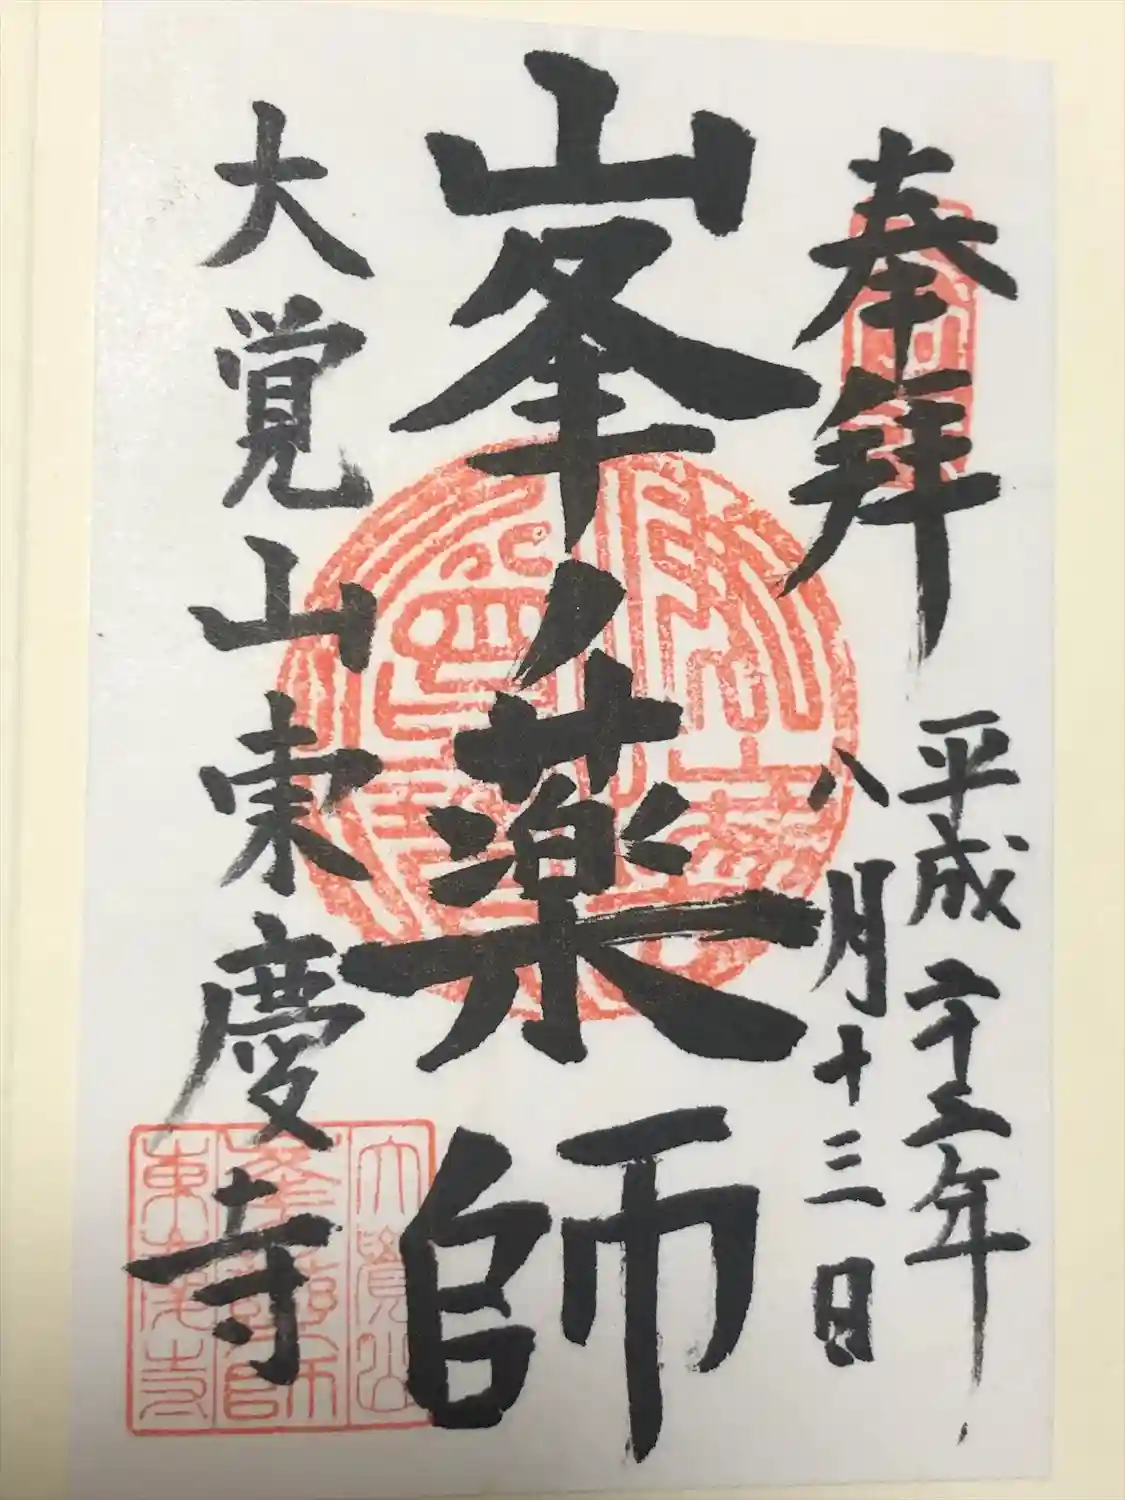 奉拝
平成二十三年
八月十三日
峯ノ薬師
大覚山東慶寺
大覺山
峯藥師
東慶寺